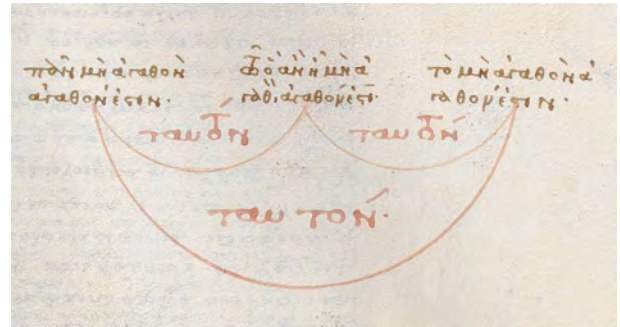 πᾶν μὴ ἀγαθὸν
ἀγαθόν ἐστιν·
ὃ ἂν ἦ μὴ ἀ
γαθὸν, ἀγαθόν ἐστι·
τὸ μὴ ἀγαθὸν ἀ
γαθόν ἐστιν·
ταυτόν
ταυτόν
ταυτόν·